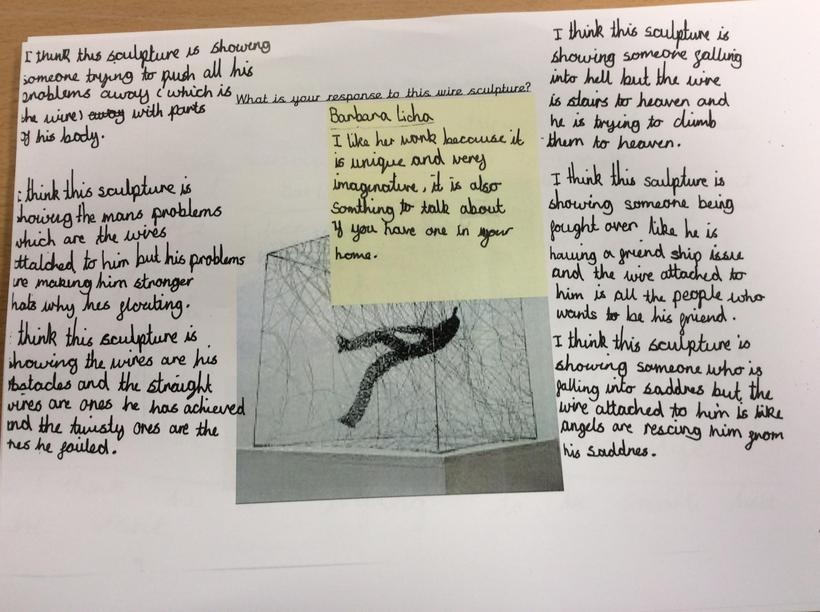 I think this sculpture is showing
someone trying to push all his
problems away (which is
the wire) away with parts
of his body.
I think this sculpture is
showing the mans problems
which are the wires
attalched to him but his problems
are making him stronger
thats why hes floating.
I think this sculpture is
showing the wires are his
obstacles and the straight
wires are ones he has achieved
and the twisty ones are the
ones he failed.
What is your response to this wire sculpture?
Barbara Licha
I like her work because it
is unique and very
imaginature, it is also
somthing to talk about
if you have one in your
home.
I think this sculpture is
showing someone falling
into hell but the wire
is stairs to heaven and
he is trying to climb
them to heaven.
I think this sculpture is
showing someone being
fought over like he is
having a friend ship issue
and the wire attached to
him is all the people who
wants to be his friend.
I think this sculpture is
showing someone who is
falling into saddnes but the
wire attached to him is like
angels are rescing him from
his saddnes.